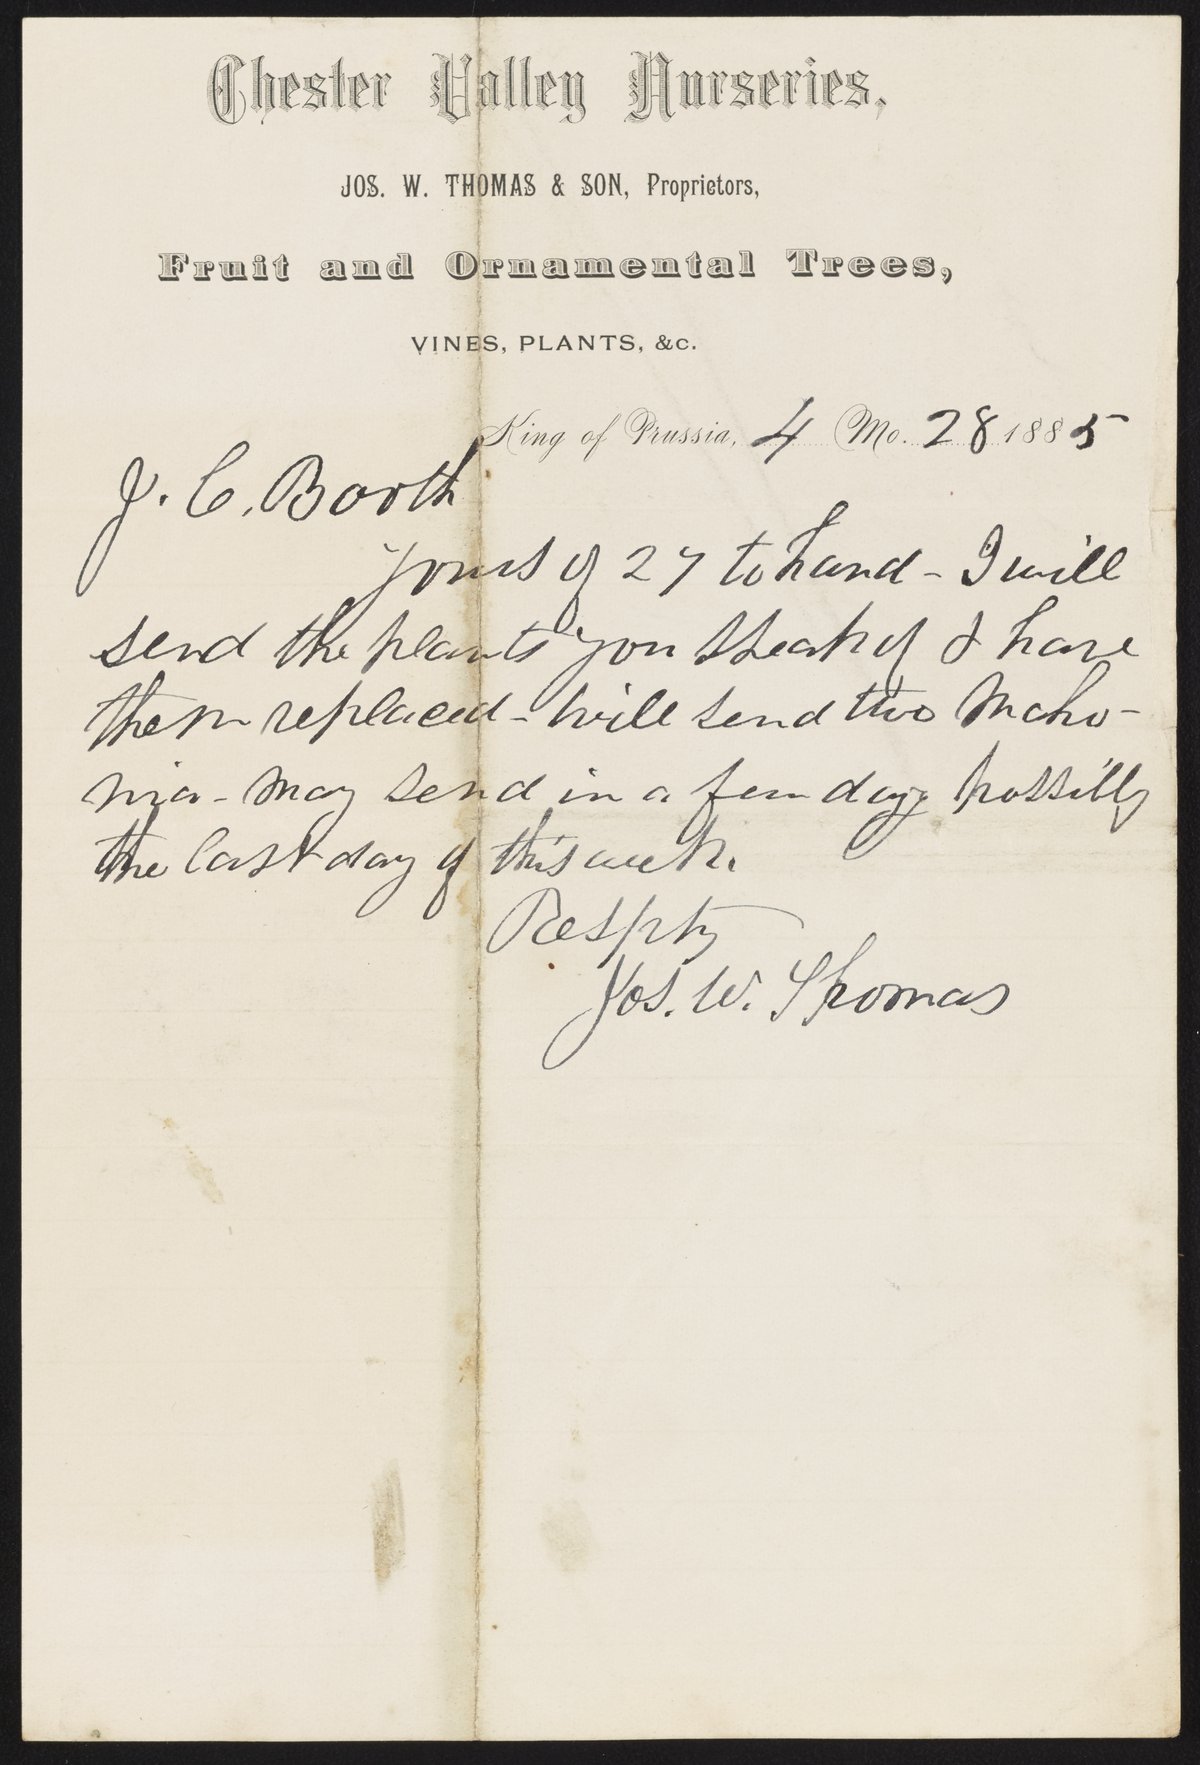 Chester Valley Nurseries,
JOS. W. THOMAS & SON, Proprietors,
Fruit and Ornamental Trees,
VINES, PLANTS, &c.
King of Prussia, 4 Mo. 28 1885
J. C. Booth
Yours of 27 to hand - I will
send the plants you speak of & have
them replaced - will send two Maho-
nia - may send in a few days possibly
the last day of this week.
Respty
Jos. W. Thomas